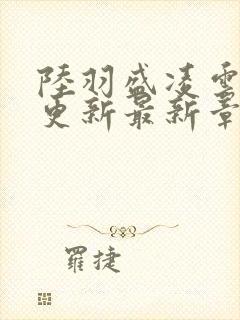 陸羽盛凌雲
更新最新章
羅捷